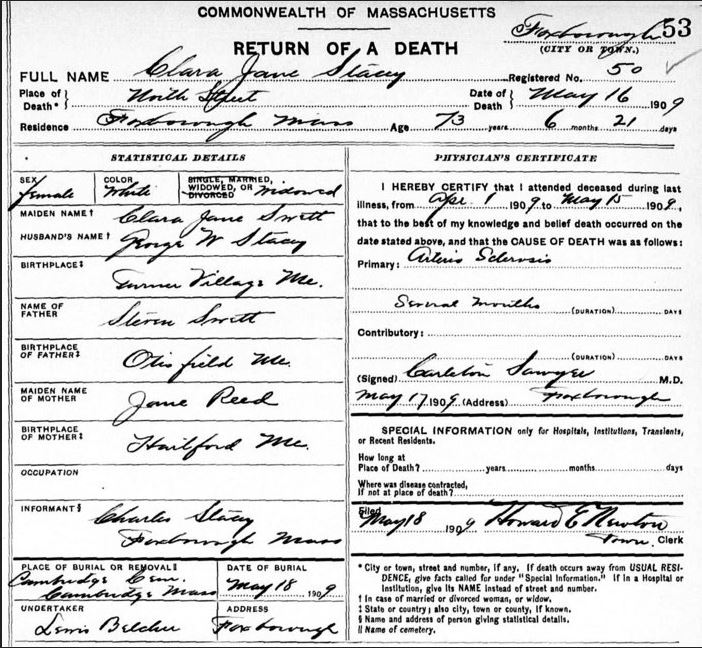 COMMONWEALTH OF MASSACHUSETTS
RETURN OF A DEATH
Foxborough 53
(CITY OR TOWN.)
FULL NAME Clara Jane Stacey Registered No. 50
Place of Death* } North Street Date of Death } May 16 1909
Residence Foxborough Mass Age 73 years 6 months 21 days
STATISTICAL DETAILS
SEX female COLOR White SINGLE, MARRIED, WIDOWED, OR DIVORCED Widowed
MAIDEN NAME† Clara Jane Swett
HUSBAND'S NAME† George W Stacey
BIRTHPLACE‡ Turner Village Me.
NAME OF FATHER Steven Swett
BIRTHPLACE OF FATHER‡ Otisfield Me.
MAIDEN NAME OF MOTHER Jane Reed
BIRTHPLACE OF MOTHER‡ Me.
OCCUPATION
INFORMANT§ Charles Stacey
Foxborough Mass
PLACE OF BURIAL OR REMOVAL‖ DATE OF BURIAL
Cambridge Cem.
Cambridge Mass May 18 1909
UNDERTAKER ADDRESS
Lewis Belcher Foxborough
PHYSICIAN'S CERTIFICATE
I HEREBY CERTIFY that I attended deceased during last
illness, from Apr 1 1909, to May 15 1909,
that to the best of my knowledge and belief death occurred on the
date stated above, and that the CAUSE OF DEATH was as follows:
Primary: Arterio Sclerosis
Several months (DURATION) DAYS
Contributory:
(DURATION) DAYS
(Signed) Carleton Sawyer M.D.
May 17 1909 (Address) Foxborough
SPECIAL INFORMATION only for Hospitals, Institutions, Transients,
or Recent Residents.
How long at
Place of Death? years months days
Where was disease contracted,
If not at place of death?
Filed
May 18 1909 Howard E Newton
Town Clerk
* City or town, street and number, if any. If death occurs away from USUAL RESI-
DENCE, give facts called for under "Special Information." If in a Hospital or
Institution, give its NAME instead of street and number.
† In case of married or divorced woman, or widow.
‡ State or country; also city, town or county, if known.
§ Name and address of person giving statistical details.
‖ Name of cemetery.